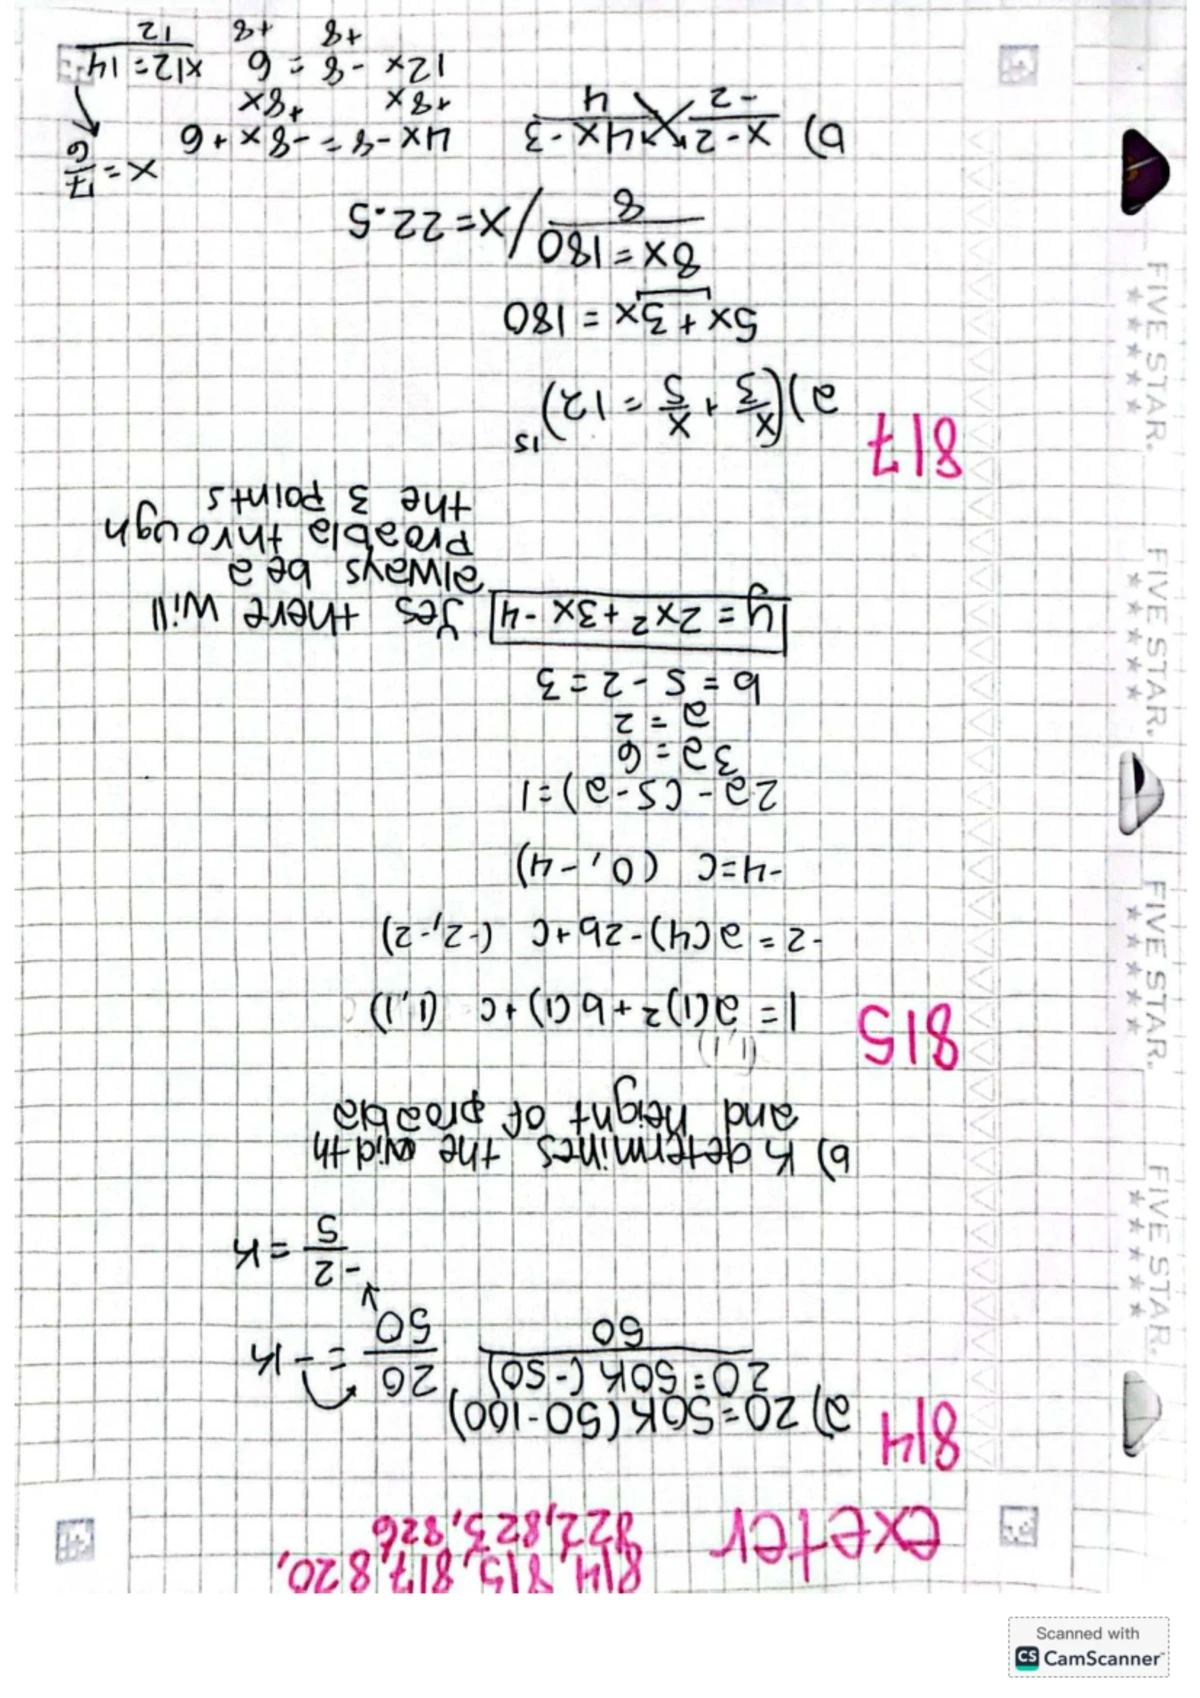 exeter
814, 815, 817, 820,
822, 823, 826
814
a) 20=50K(50-100)
20=50K(-50)
50
20
50
= -K
-2
5
=K
b) K determines the width
and height of proabla
815
(1,1)
1 = a(1)2 + b(1) + c (1,1)
-2 = a(4)-2b+c (-2,-2)
-4=c (0,-4)
2a-(5-a)=1
3a=6
a=2
b=5-2=3
y=2x²+3x-4
yes there will
always be a
proabla through
the 3 points
817
a) (x/3 + x/5 = 12)15
5x+3x=180
8x=180
8
/x=22.5
b) x-2
-2
4x-3
4
4x-8=-8x+6
+8x +8x
12x-8=6
+8 +8
x12=14
12
x=7/6
FIVE STAR.
★★★★★
FIVE STAR.
★★★★★
FIVE STAR.
★★★★★
FIVE STAR.
★★★★★
Scanned with
CS CamScanner